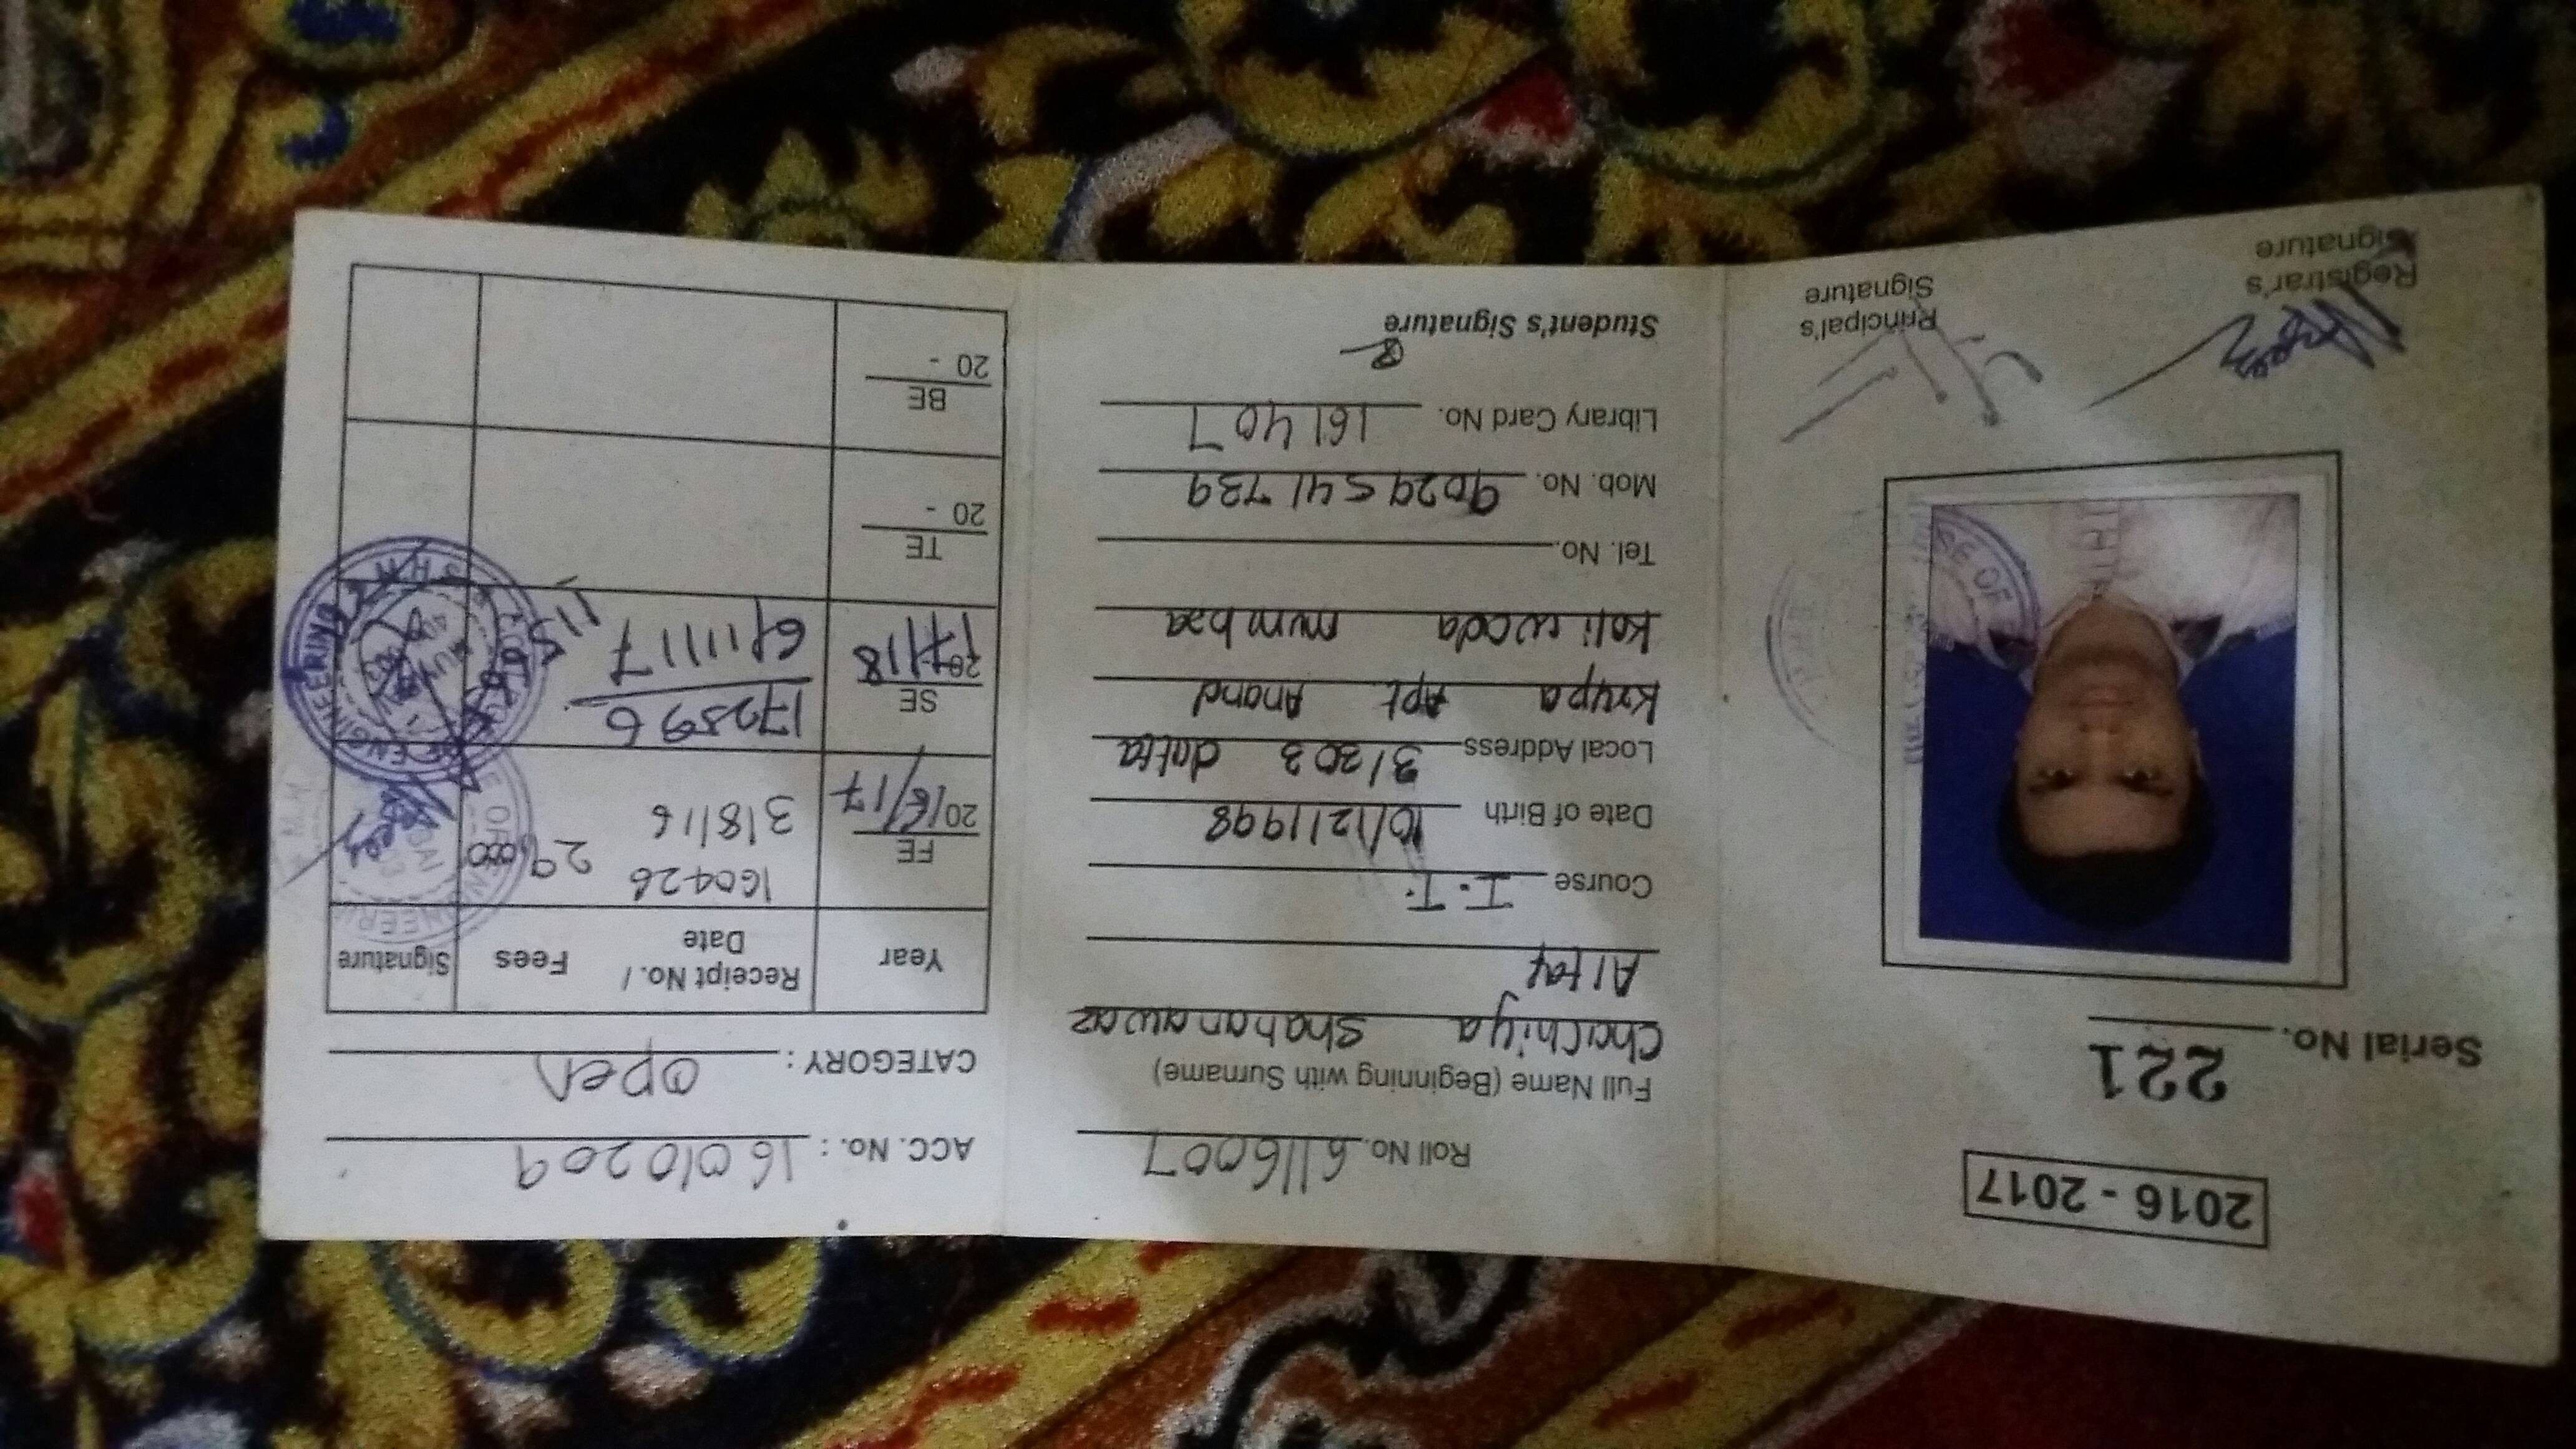 2016 - 2017
Serial No. 221
Registrar's
Signature
Principal's
Signature
Roll No. 6116007
Full Name (Beginning with Surname)
Chachiya Shahanawaz
Altaf
Course I.T.
Date of Birth 10/12/1998
Local Address 3/203 datta
Krupa Apt. Anand
Koliwada mumbra
Tel. No.
Mob. No. 9029541739
Library Card No. 161407
Student's Signature
ACC. No. : 16010209
CATEGORY : open
Year Receipt No. / Date Fees Signature
FE 2016/17 160426 3/8/16 29,000
SE 17/18 172596 6/11/17
TE 20 -
BE 20 -
ENGINEERING